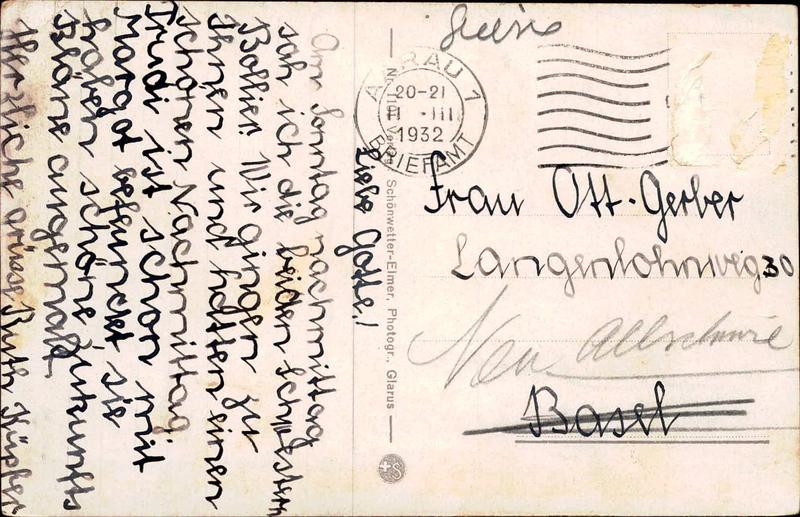 Liebe Gotte!
Am Sonntag nachmittag
sah ich die beiden Schwestern
Bollier. Wir gingen zu
Ihnen und hatten einen
schönen Nachmittag.
Trudi ist schon mit
Margot befreundet, sie
haben schöne Zukunfts
Pläne ausgemalt.
Herzliche grüsse Ruth Küpfer
Nr. 110
Schönwetter-Elmer, Photogr., Glarus
AARAU 1
20-21
11 -III
1932
BRIEFAMT
Frau Ott-Gerber
Langenlohnweg 30
Neu Allschwil
Basel